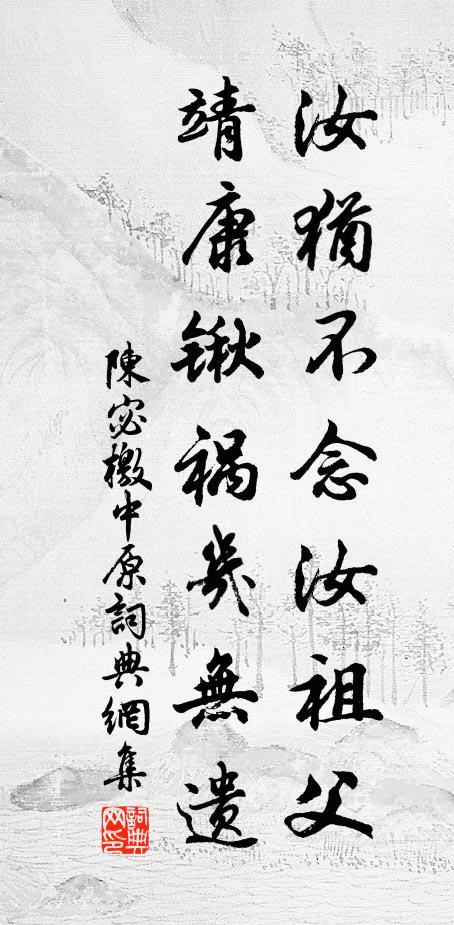 汝猶不念汝祖父
靖康鍬禍幾無遺
陳宓檄中原詞典網集
詞典
网印